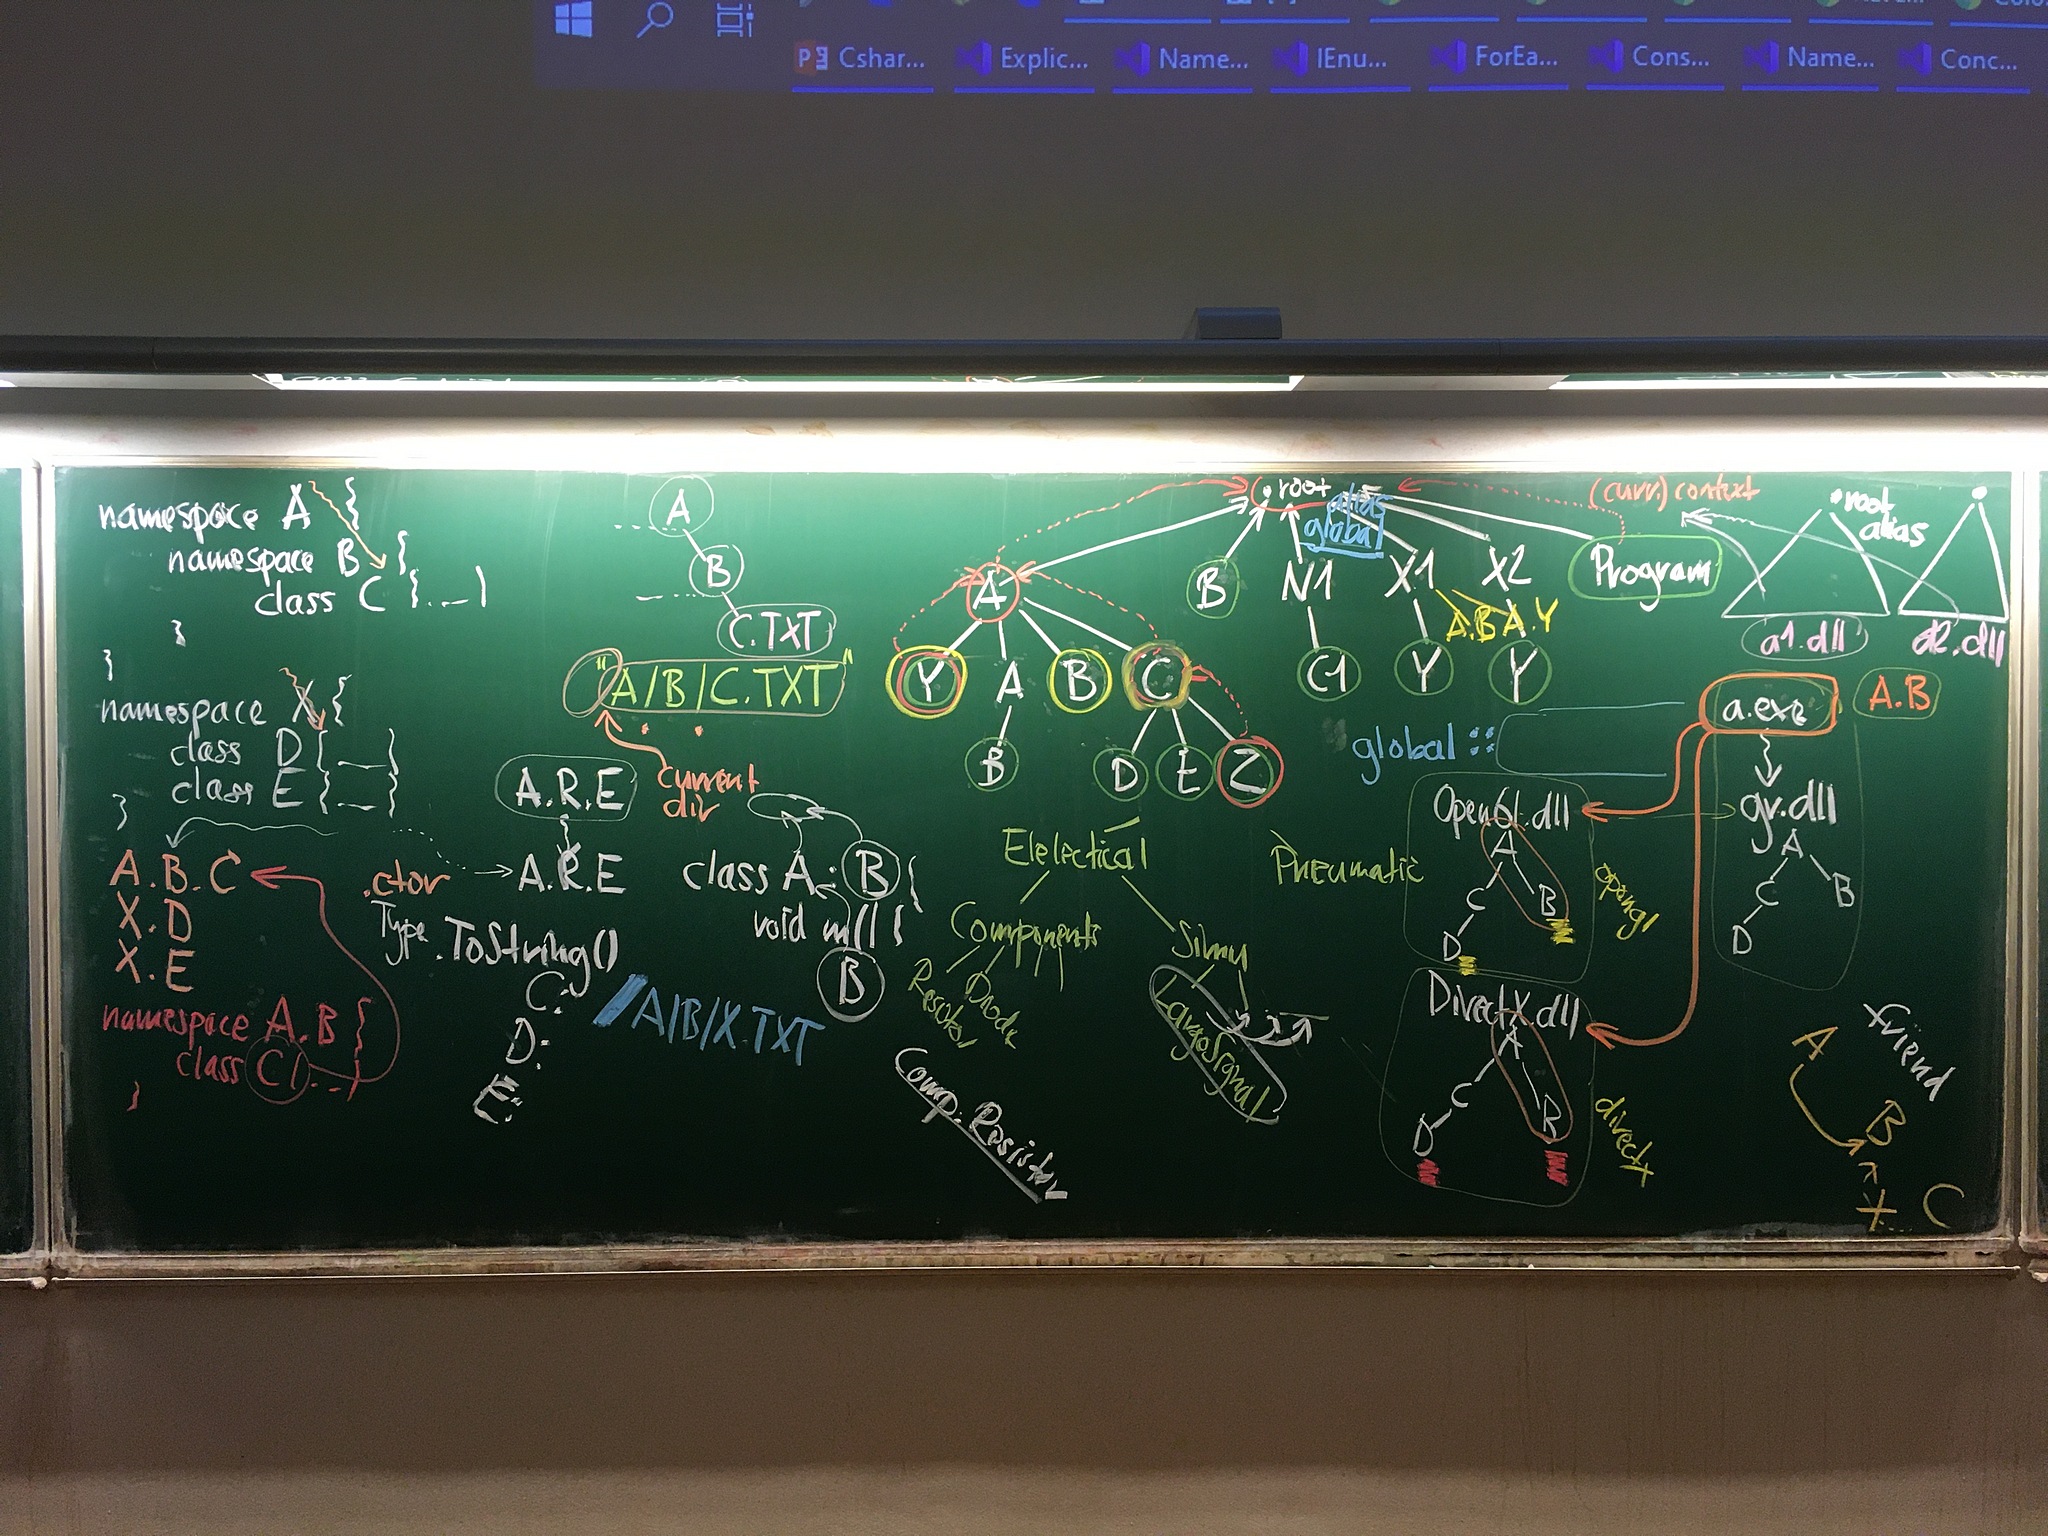 Cshar...
Explic...
Name...
IEnu...
ForEa...
Cons...
Name...
Conc...
namespace A {
namespace B {
class C {...}
}
}
namespace X {
class D {...}
class E {...}
}
A.B.C
X.D
X.E
namespace A.B {
class C {...}
}
A
B
C.TXT
"A/B/C.TXT"
current
dir
A.R.E
A.R.E
.ctor
Type.ToString()
C:
D:
E:
/A/B/X.TXT
class A : B {
void m() {
B
.root
alias
global
(curr.) context
A
B
N1
X1
X2
Program
A.B A.Y
Y
A
B
C
C1
Y
Y
B
D
E
Z
global ::
Elelectical
Components
Simu
Pneumatic
Resistor
Diode
Comp.Resistor
.root
alias
a1.dll
a2.dll
a.exe
A.B
OpenGl.dll
A
C
B
D
opengl
gr.dll
A
C
B
D
DirectX.dll
A
C
B
D
directx
friend
A
B
X
C